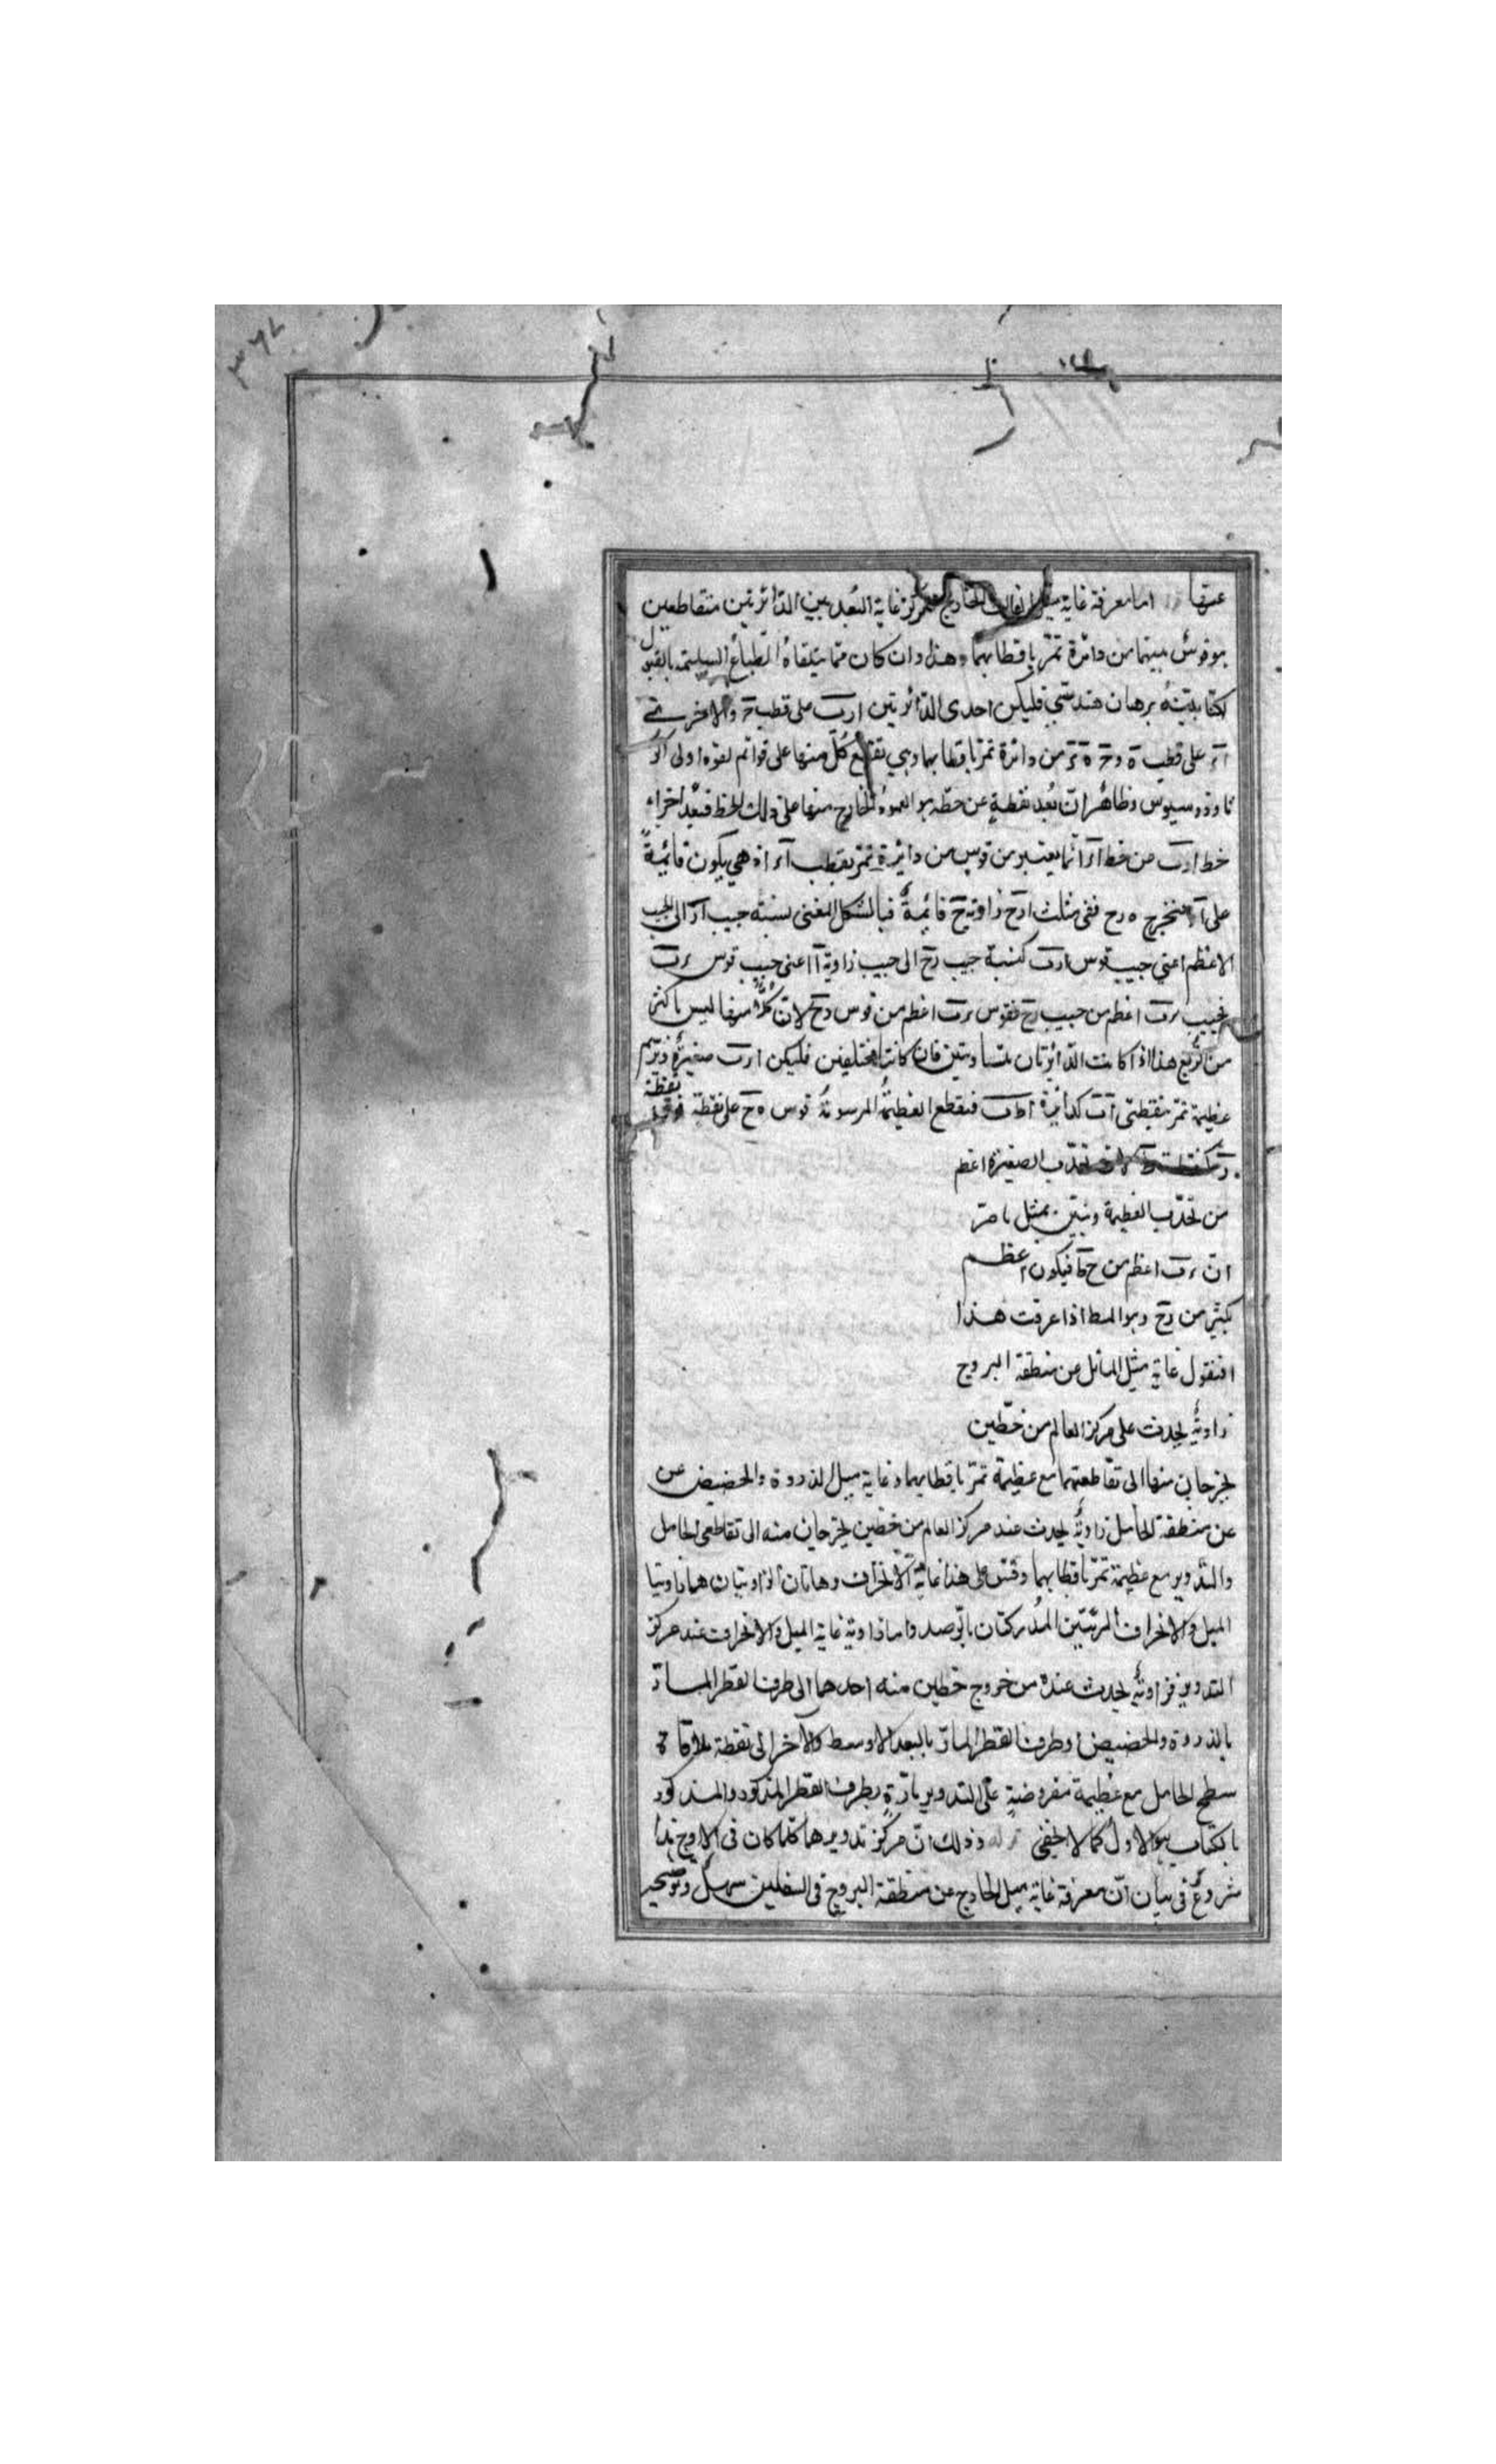 عنها اما معرفة غاية ميل الفلك الخارج المركز غاية البُعد بين الدائرتين متقاطعين
هو قوسٌ بينهما من دائرة تمرّ باقطابهما وهذا وان كان ممّا يتلقاهُ الطباعُ السليمة بالقبول
لكنّا بيّنّهُ برهان هندسّي فليكن احدى الدائرتين ارب على قطب والاخرى
على قطب ه و من دائرة تمرّ باقطابهما وهي تقطع كُلّ منها على قوائم لقوه اولى اكر
ثاوذوسيوس وظاهرُ انّ بُعد نقطةٍ عن خطّه هو العمودُ الخارج منها على ذلك الخط فبُعد اجزاء
خط ارب من خط انّما يعتبر من قوسٍ من دائرة تمرّ بقطب اذ هي يكون قائمةً
على فنخرج ه رح ففي مثلث ارح زاوية ح قائمةٌ فبالشكل المغنى نسبة جيب ار الى الجيب
الاعظم اعني جيب قوس ارب كنسبة جيب رح الى جيب زاوية ا اعنى جيب قوس
فجيب اعظم من جيب رح فقوس اعظم من قوس رح لانّ كلًّا منها ليس باكثر
من الرُّبع هذا اذا كانت الدائرتان متساويتين فان كانتا مختلفين فليكن ارب صغيرةً ونرسم
عظيمة تمرّ بنقطتى اب كدائرة اط ب فيقطع العظيمةُ المرسومةُ قوس ه ح على نقطة فوق نقطة
تحدّب الصغيرة اعظم
من تحدّب العظيمة ونبيّن بمثل ما مرّ
انّ اعظم من ح ط فيكون اعظم
بكثيرٍ من رح وهو المط اذا عرفت هذا
فنقول غاية ميل المائل عن منطقة البروج
زاويةٌ يحدث على مركز العالم من خطّين
يخرجان منها الى تقاطعهما مع عظيمة تمرّ باقطابهما وغاية ميل الذروة والحضيض عن
عن منطقة الحامل زاويةٌ يحدث عند مركز العالم من خطين يخرجان منه الى تقاطعى الحامل
والتدوير مع عظيمة تمرّ باقطابهما وقس على هذا غاية الانحراف وهاتان الزاويتان هما زاويتا
الميل والانحراف المرئيّتين المُدركتان بالرّصد واما زاوية غاية الميل والانحراف عند مركز
التدوير فزاويةٌ يحدث عنده من خروج خطين منه احدهما الى طرف القطر المارّ
بالذروة والحضيض او طرف القطر المارّ بالبعد الاوسط والآخر الى نقطة ملاقاة
سطح الحامل مع عظيمة مفروضةٍ على التدوير مارّةٍ بطرف القطر المذكور والمذكور
بالكتاب هو الاول كما لا يخفى قوله وذلك انّ مركز تدويرها كلّما كان فى الاوج بدأ
شروعٌ فى بيان انّ معرفة غاية ميل الخارج عن منطقة البروج فى السفليين سهلٌ وتوضيحه